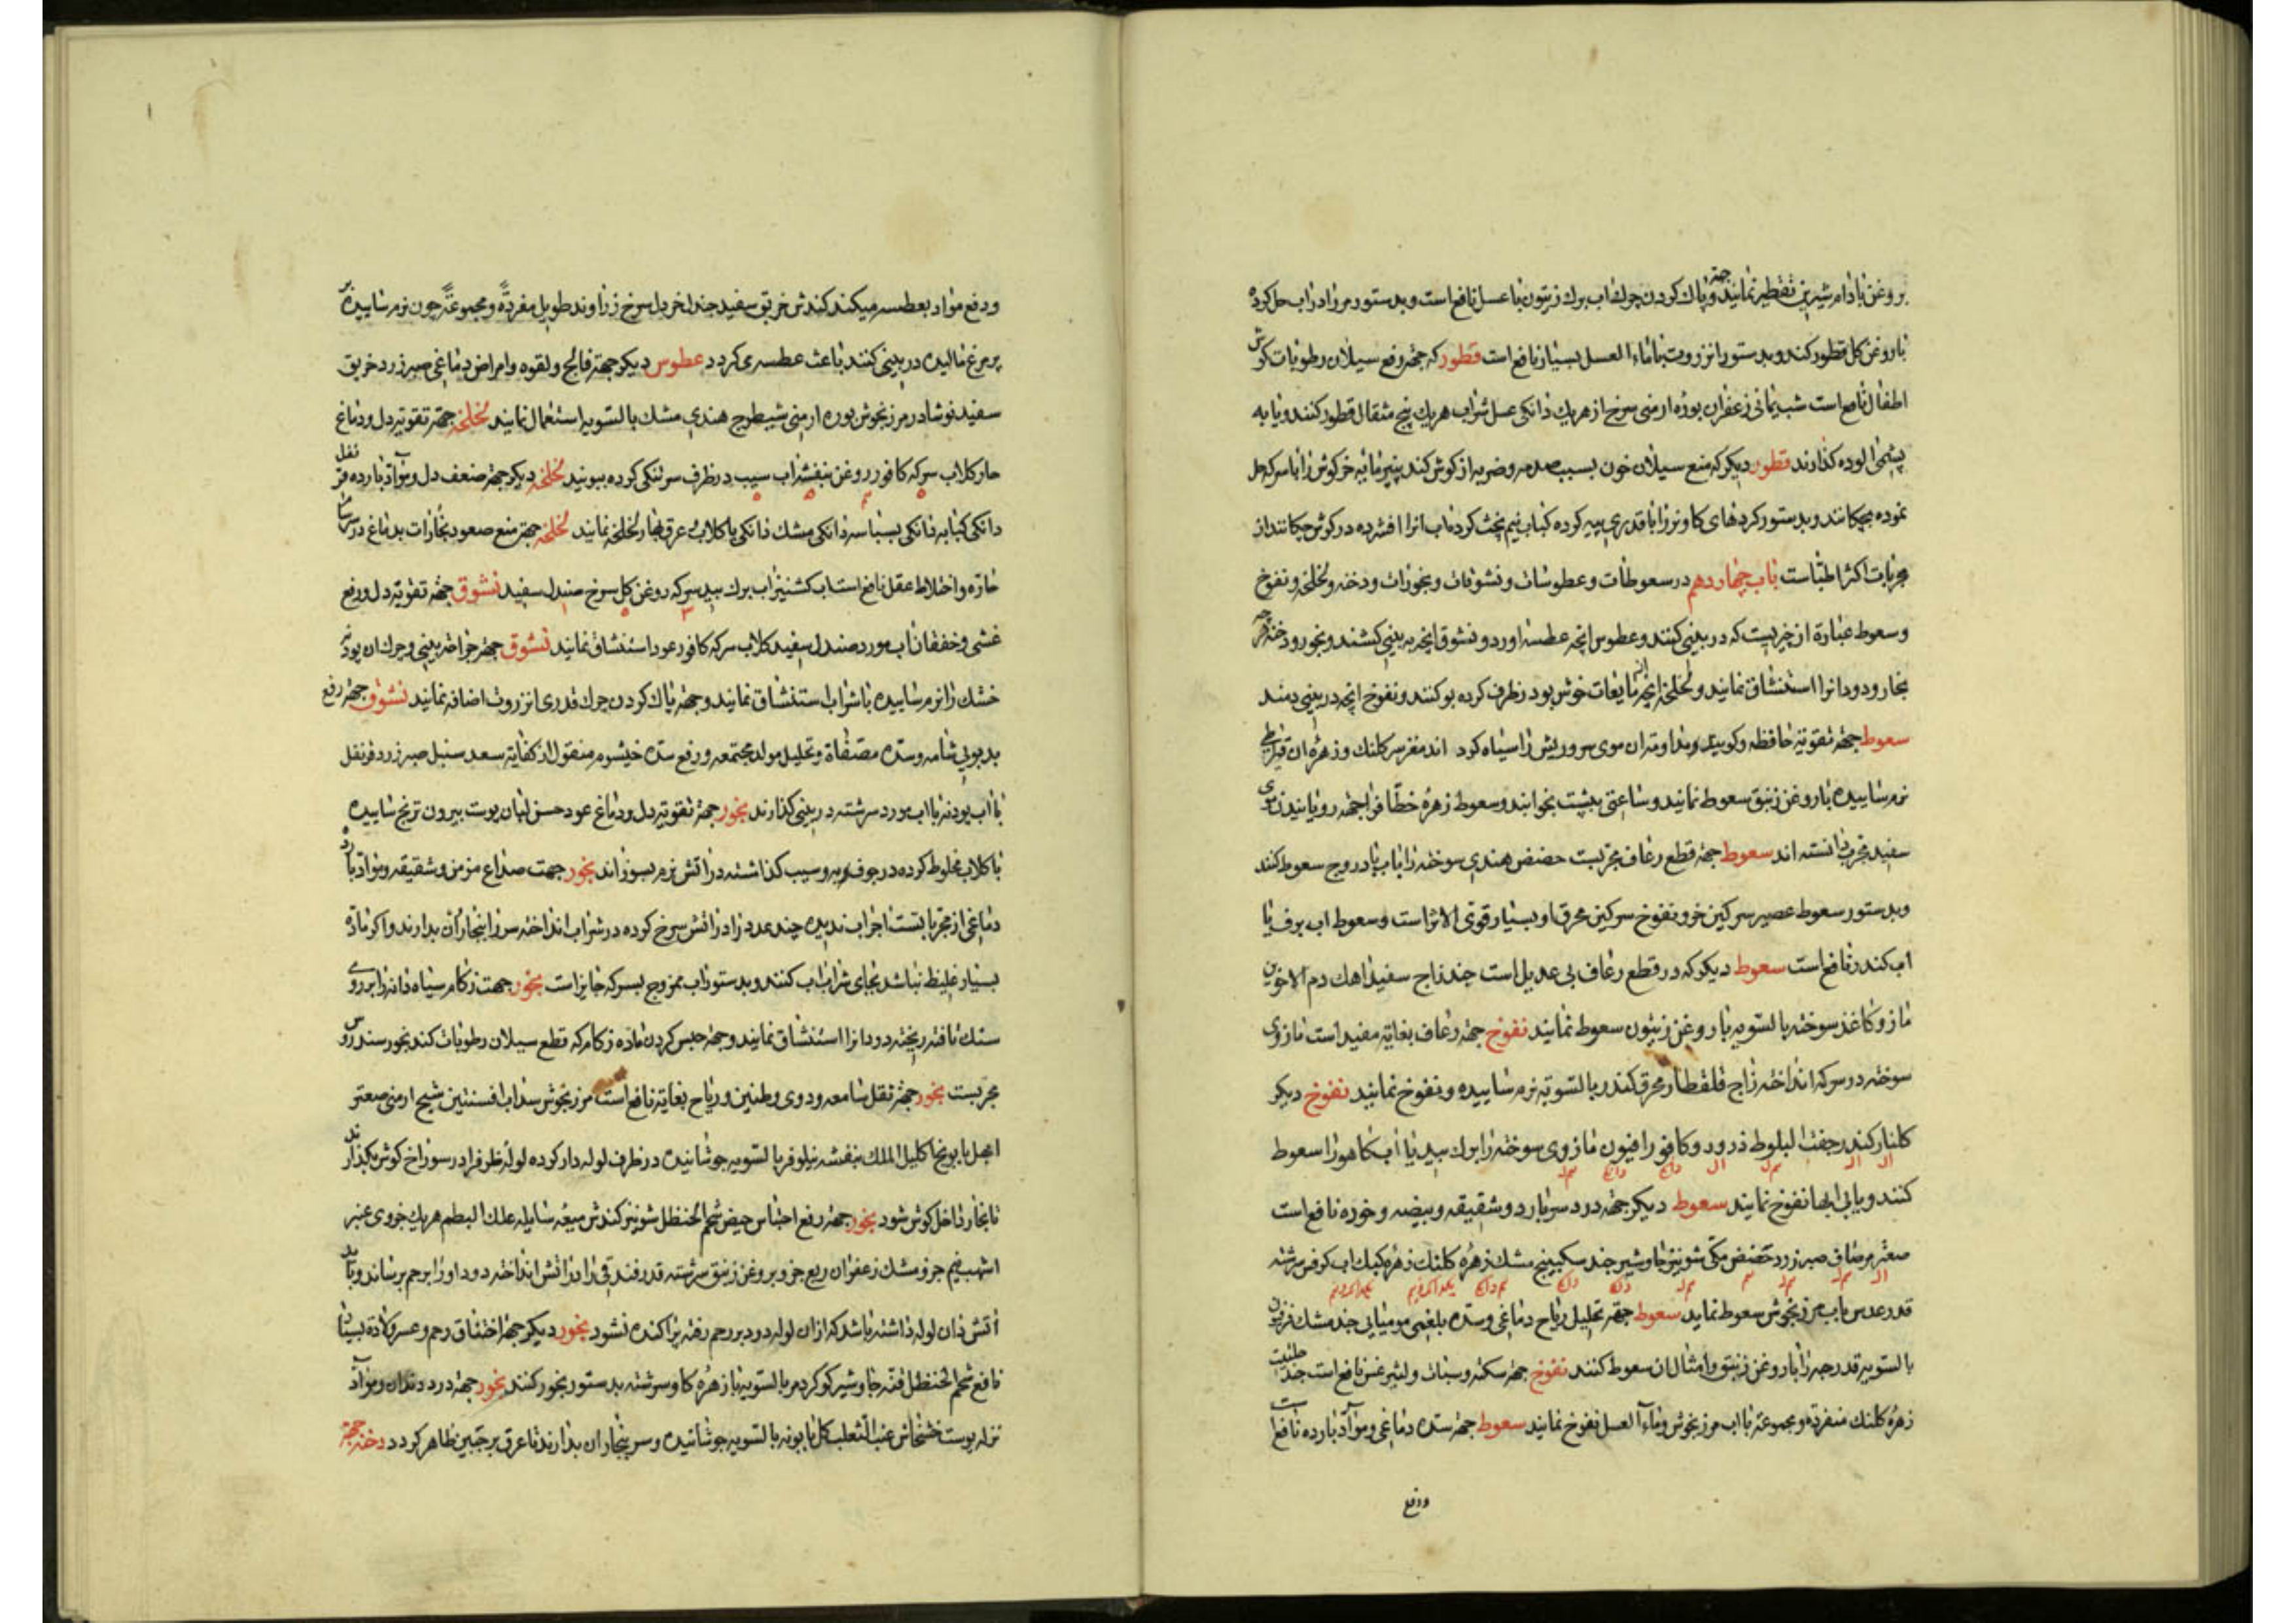 بروغن بادام شیرین تقطیر نمایند و جهة پاک کردن چرک اب برک زیتون با عسل نافع است و بدستور مر را در اب حل کرده
با روغن کل قطور کنند و بدستور انزروت با ماء العسل بسیار نافع است قطور که جهة رفع سیلان رطوبات کوش
اطفال نافع است شب یمانی زعفران بوره ارمنی سرخ از هر یک دانکی عسل شراب هر یک پنج مثقال قطور کنند و یا به
پشمی الوده کذارند قطور دیکر که منع سیلان خون بسبب صدمه و ضربه از کوش کند پنیر مایه خرکوش را با سرکه حل
نموده بچکانند و بدستور کردهای کاو نر را با قدری پیه کرده کباب نیم پخت کرده اب انرا افشرده در کوش چکانند از
مجربات اکثر اطبا است باب چهاردهم در سعوطات و عطوسات و نشوقات و بخورات و دخنه و لخلخه و نفوخ
و سعوط عبارة از چیزیست که در بینی کنند و عطوس انچه عطسه اورد و نشوق انچه به بینی کشند و بخور و دخنه هر چه
بخار و دود انرا استنشاق نمایند و لخلخه انچه از مایعات خوش بو در ظرف کرده بو کنند و نفوخ انچه در بینی دمند
سعوط جهة تقویة حافظه وکویند مداومة ان موی سر و ریش را سیاه کرد اند مغز سر کلنک و زهره ان قیراطی
نرم ساییده با روغن زنبق سعوط نمایند و ساعتی بپشت بخوابند و سعوط زهره خطاف را جهة رویانیدن موی
سفید مجرب دانسته اند سعوط جهة قطع رعاف مجربست حضض هندی سوخته را با اب بادروج سعوط کنند
و بدستور سعوط عصیر سرکین خر و نفوخ سرکین محرق او بسیار قوی الاثر است و سعوط اب برف با
اب کندر نافع است سعوط دیکر که در قطع رعاف بی عدیل است جند زاج سفید اهک دم الاخوین
مازو کاغذ سوخته بالسویه با روغن زیتون سعوط نمایند نفوخ جهة رعاف بغایة مفید است مازوی
سوخته در سرکه انداخته زاج قلقطار محرق کندر بالسویة نرم ساییده و نفوخ نمایند نفوخ دیکر
کلنار کندر جفت البلوط ذرور و کافور افیون مازوی سوخته را برک بید یا اب کاهو را سعوط
کنند و یا بی ابها نفوخ نمایند سعوط دیکر جهة درد سر بارد و شقیقه و بیضه و خوده نافع است
صعتر مر صافی صبر زرد حضض مکی شونیز جاوشیر جند سکبینج مشک زهره کلنک زهره کبک اب کرفس سرشته
قدر عدس باب مرزنجوش سعوط نماید سعوط جهة تحلیل ریاح دماغی و سده بلغمی مومیایی جند مشک فربیون
بالسویه قدر حبه را با روغن زنبق و امثال ان سعوط کنند نفوخ جهة سکته و سبات و لیثرغس نافع است جند حلتیت
زهره کلنک منفردة و مجموعة با اب مرزنجوش و ماء العسل نفوخ نمایند سعوط جهة سده دماغی و مواد بارده نافع است
ودفع
ودفع مواد بعطسه میکند کندش خربق سفید جند خردل سرخ زراوند طویل مفردة و مجموعة چون نرم ساییده بر
پر مرغ مالیده در بینی کنند باعث عطسه کردد عطوس دیکر جهة فالج و لقوه و امراض دماغی صبر زرد خربق
سفید نوشادر مرزنجوش بوره ارمنی شیطرج هندی مشک بالسویه استعمال نمایند لخلخه جهة تقویة دل و دماغ
حار کلاب سرکه کافور روغن بنفشه اب سیب در ظرف سر تنکی کرده ببویند لخلخه دیکر جهة ضعف دل و مواد بارده قرنفل
دانکی کبابه دانکی بسباسه دانکی مشک دانکی با کلاب عرق بهار لخلخه نمایند لخلخه جهة منع صعود بخارات بدماغ در سرسام
حاره و اختلاط عقل نافع است اب کشنیز اب برک بید سرکه روغن کل سرخ صندل سفید نشوق جهة تقویة دل و رفع
غشی و خفقان اب مورد صندل سفید کلاب سرکه کافور عود استنشاق نمایند نشوق جهة جراحة بینی و چرک ان پودنه
خشک را نرم ساییده با شراب استنشاق نمایند و جهة پاک کردن چرک قدری انزروت اضافه نمایند نشوق جهة رفع
بد بویی شامه و سده مصفاة و تحلیل مواد مجتمعه و رفع سده خیشوم منقول از کفایة سعد سنبل صبر زرد قرنفل
با اب پودنه یا اب مورد سرشته در بینی کذارند بخور جهة تقویة دل و دماغ عود حسن لبان پوست بیرون ترنج ساییده
با کلاب مخلوط کرده در جوف به و سیب کذاشته در اتش نرم بسوزانند بخور جهت صداع مزمن و شقیقه و مواد بارده
دماغی از مجرباتست اجر اب ندیده چند عدد را در اتش سرخ کرده در شراب انداخته سر را ببخار ان بدارند و اکر ماده
بسیار غلیظ نباشد بجای شراب اب کنند و بدستور اب ممزوج بسرکه جایز است بخور جهت زکام سیاه دانه را بر روی
سنک تافته ریخته دود انرا استنشاق نمایند و جهة حبس کردن ماده زکام که قطع سیلان رطوبات کند بخور سندروس
مجربست بخور جهة ثقل سامعه و دوی و طنین و ریاح بغایة نافع است مرزنجوش سداب افسنتین شیح ارمنی صعتر
بابونج اکلیل الملک بنفشه نیلوفر بالسویه جوشانیده در ظرف لوله دار کرده لوله ظرف را در سوراخ کوش بکذارند
تا بخار داخل کوش شود بخور جهة رفع احتباس حیض شحم الحنظل شونیز کندش میعه سایله علک البطم هر یک جزوی عنبر
اشهب نیم جزو مشک زعفران ربع جزو بروغن زنبق سرشته قدر فندقی را در اتش انداخته دود او را برحم برساند و باید
اتش دان لوله داشته باشد که از ان لوله دود بر رحم رفته پراکنده نشود بخور دیکر جهة اختناق رحم و عسر ولادة بسیار
نافع شحم الحنظل قنه جاوشیر کوکرد مر بالسویه با زهره کاو سرشته بدستور بخور کنند بخور جهة درد دندان و مواد
نزله پوست خشخاش عنب الثعلب کل بابونه بالسویه جوشانیده و سر ببخار ان بدارند تا عرق بر جبین ظاهر کردد دخنه جهة